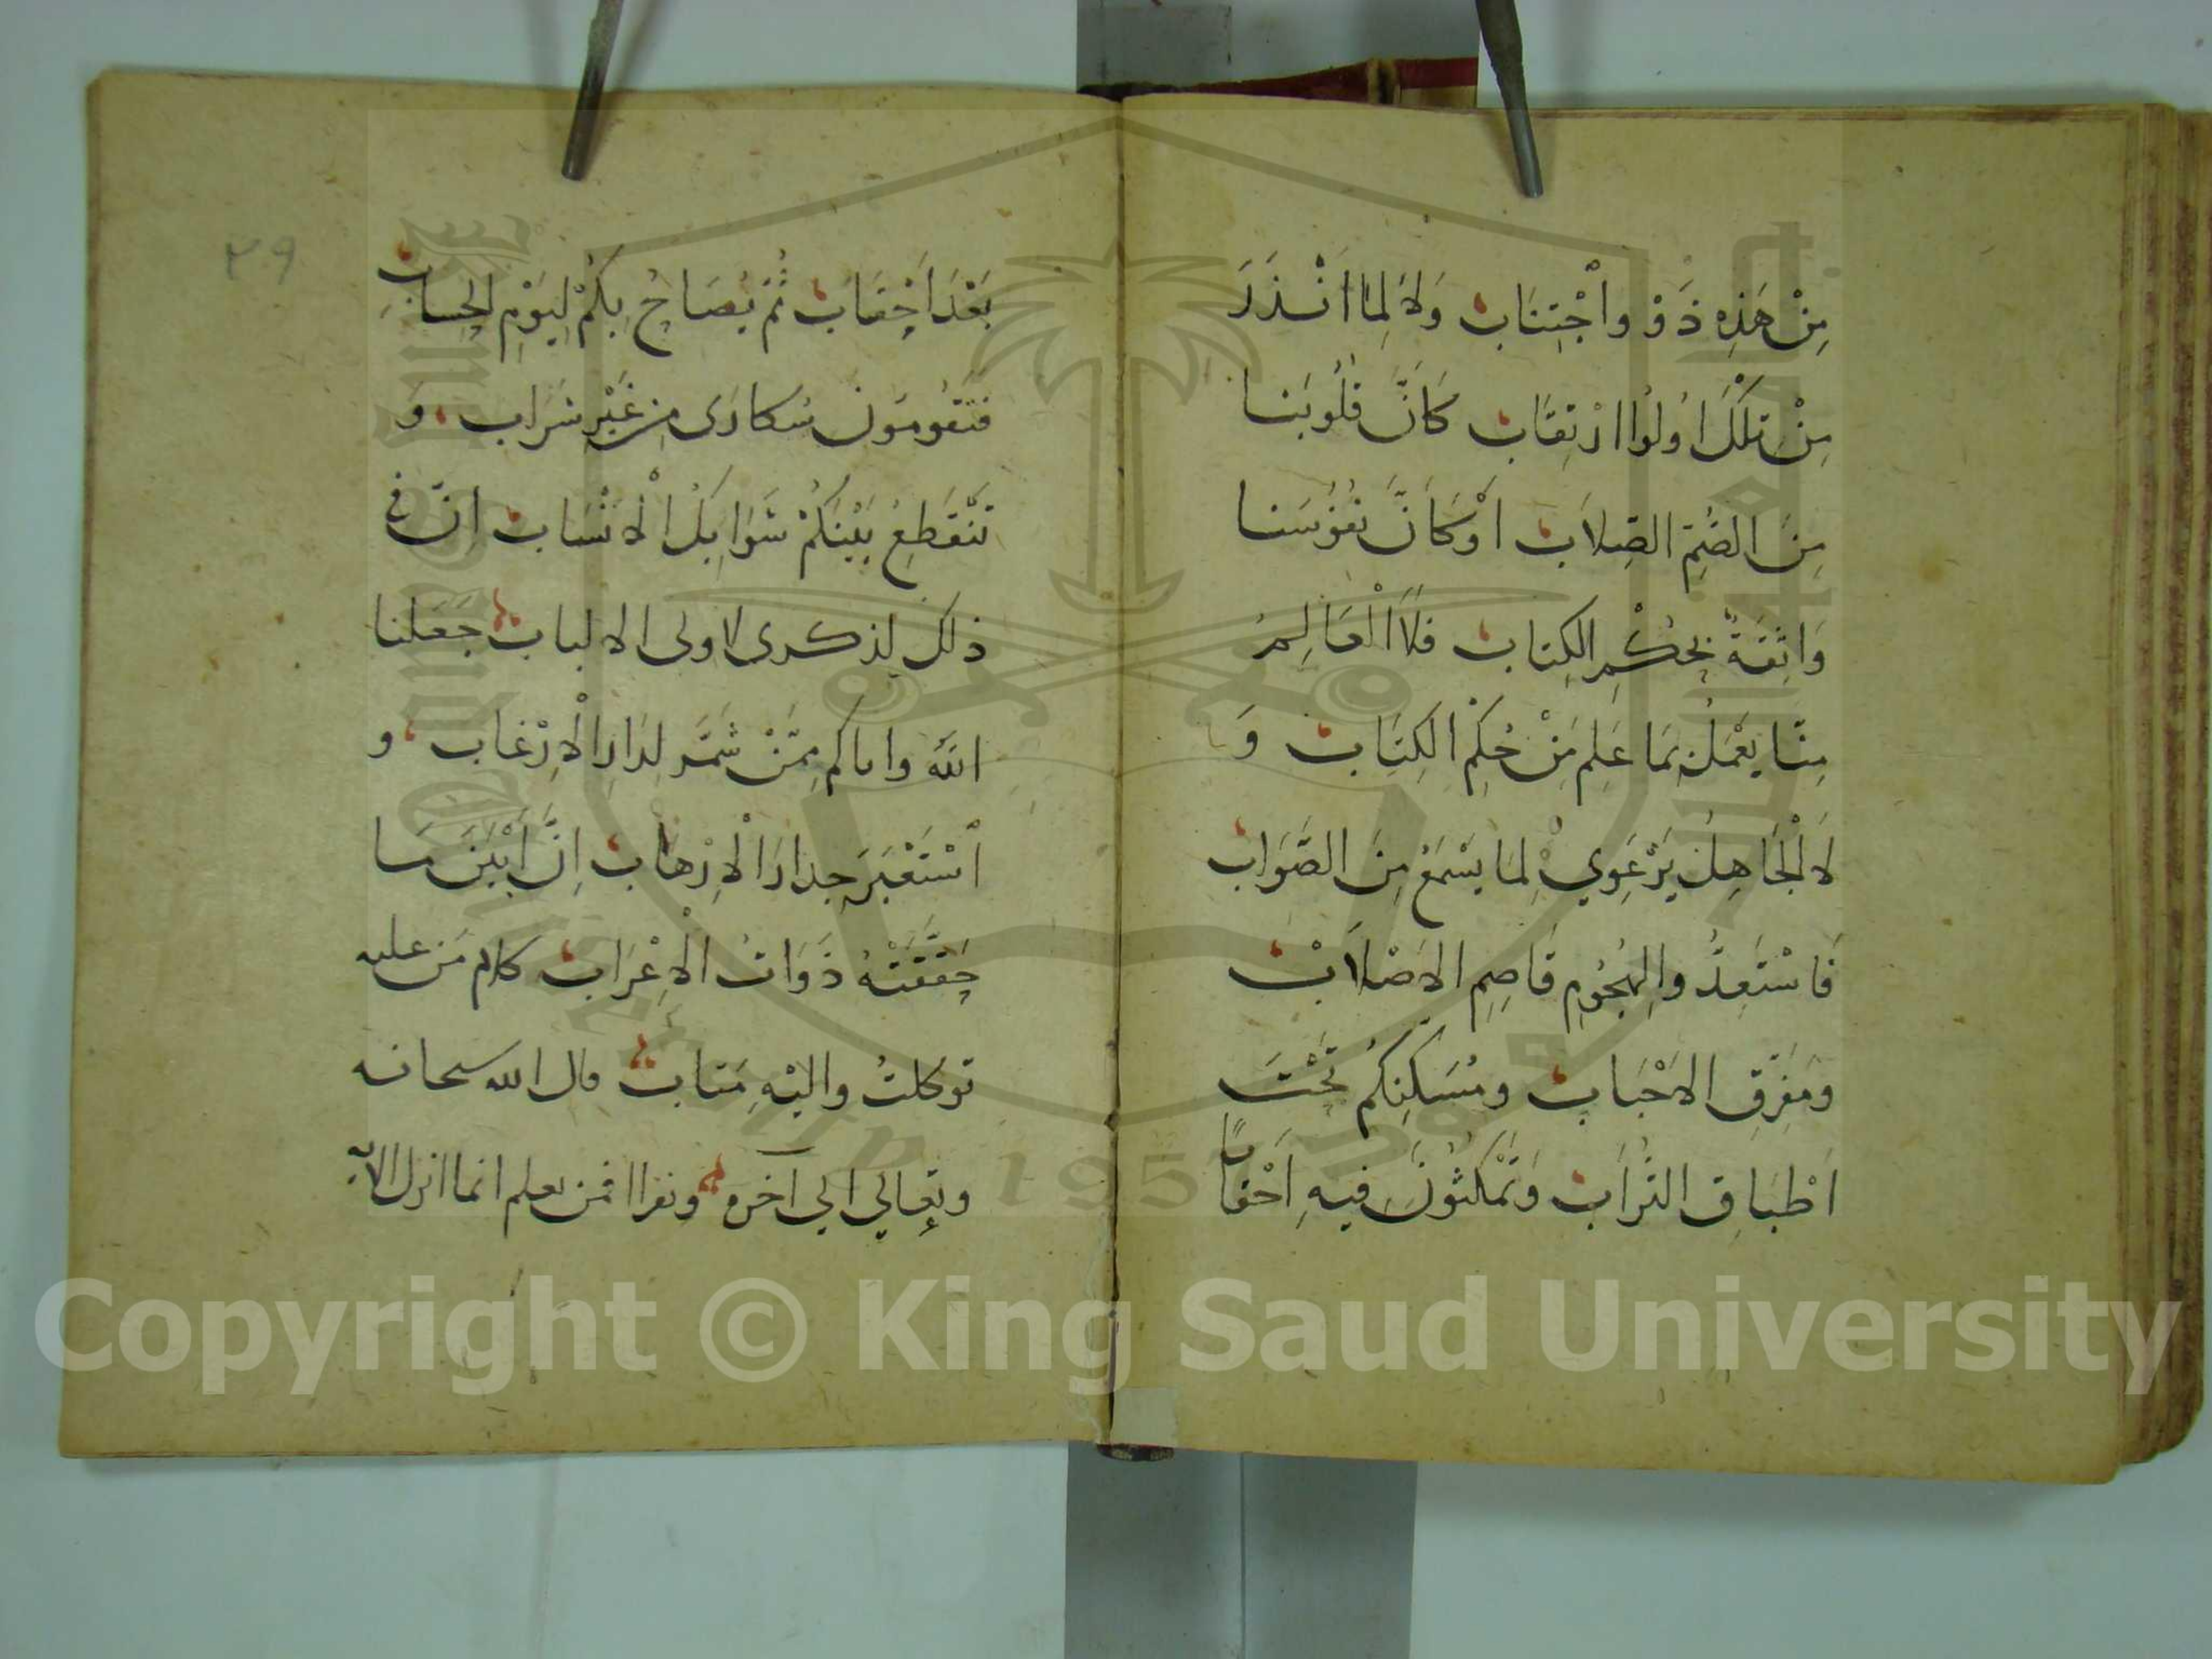 مِنْ هَذِهِ ذَوُ واْجْتِنَابٍ وَلاَ لِمَا اَنْذَرَ
مِنْ تِلْكَ اُولُوا ارْتِقَابٍ كَاَنَّ قُلُوبَنا
مِنَ الصُّمِّ الصِّلاَبِ اَوْ كَاَنَّ نُفُوْسَنا
وَاثِقَةٌ بِحُكْمِ الكِتَابِ فَلاَ اْلعَالِمُ
مِنَّا يَعْمَلُ بمَا عَلِمَ مِنْ حُكْمِ الكِتَابِ وَ
لاَ اْلجَاهِلُ يَرْعَوِي لِمَا يَسْمَعُ مِنَ الصَّوَابِ
فَاسْتَعِدُّوا لِهُجُوْمِ قَاصِمِ الاَصْلاَبِ
ومُفَرِّقِ الاَحْبَابِ ومُسَكِنِكُمْ تَحْتَ
اَطْبَاقِ التُّرَابِ وَتَمْكُثُوْنَ فِيهِ اَحْقَابًا
بَعْدَ اَحْقَابٍ ثُمَّ يُصَاحُ بِكُمْ لِيَوْمِ الحِسَابِ
فَتَقُومُوْنَ سُكارَى مِن غَيْرِ شَرَابٍ وَ
تَنْقَطِعُ بَيْنَكُمْ شَوَابِكُ اْلاَنْسَابِ انّ فى
ذلك لذكرى لاولى الالباب جَعَلنا
اللهُ واياكم مِمَّنْ شَمَّرَ لدَارِ اْلاِرْغَابِ و
اسْتَعْبَرَ حِذارَ اْلاِرْهَابِ اِنَّ اَبْيَنَ مَا
حَقَّقَتْهُ ذَوَاتُ اْلاِعْرَابِ كلام مَن عليه
توكلتُ واليْهِ مَتاب قال الله سبحانه
وتعالى الي آخره ونقرا افمن يعلم انما انزل الآيه
٢٩
Copyright © King Saud University
1957